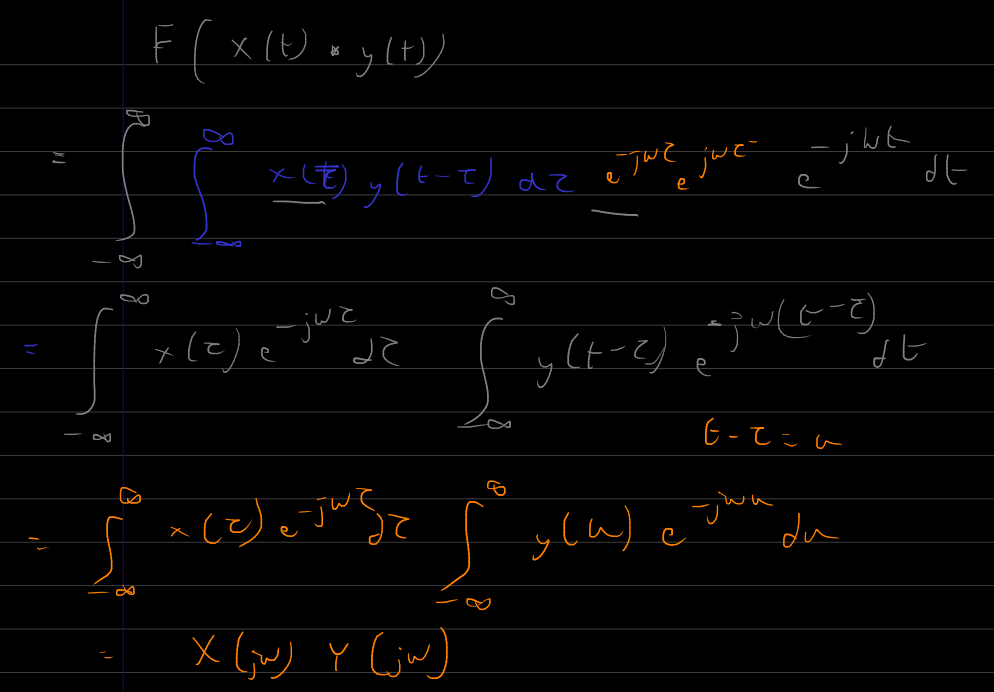 F(x(t) * y(t))
= ∫_{-∞}^{∞} ∫_{-∞}^{∞} x(τ) y(t-τ) dτ e^{-jωτ} e^{jωτ} e^{-jωt} dt
= ∫_{-∞}^{∞} x(τ) e^{-jωτ} dτ ∫_{-∞}^{∞} y(t-τ) e^{-jω(t-τ)} dt
t-τ = u
= ∫_{-∞}^{∞} x(τ) e^{-jωτ} dτ ∫_{-∞}^{∞} y(u) e^{-jωu} du
= X(jω) Y(jω)